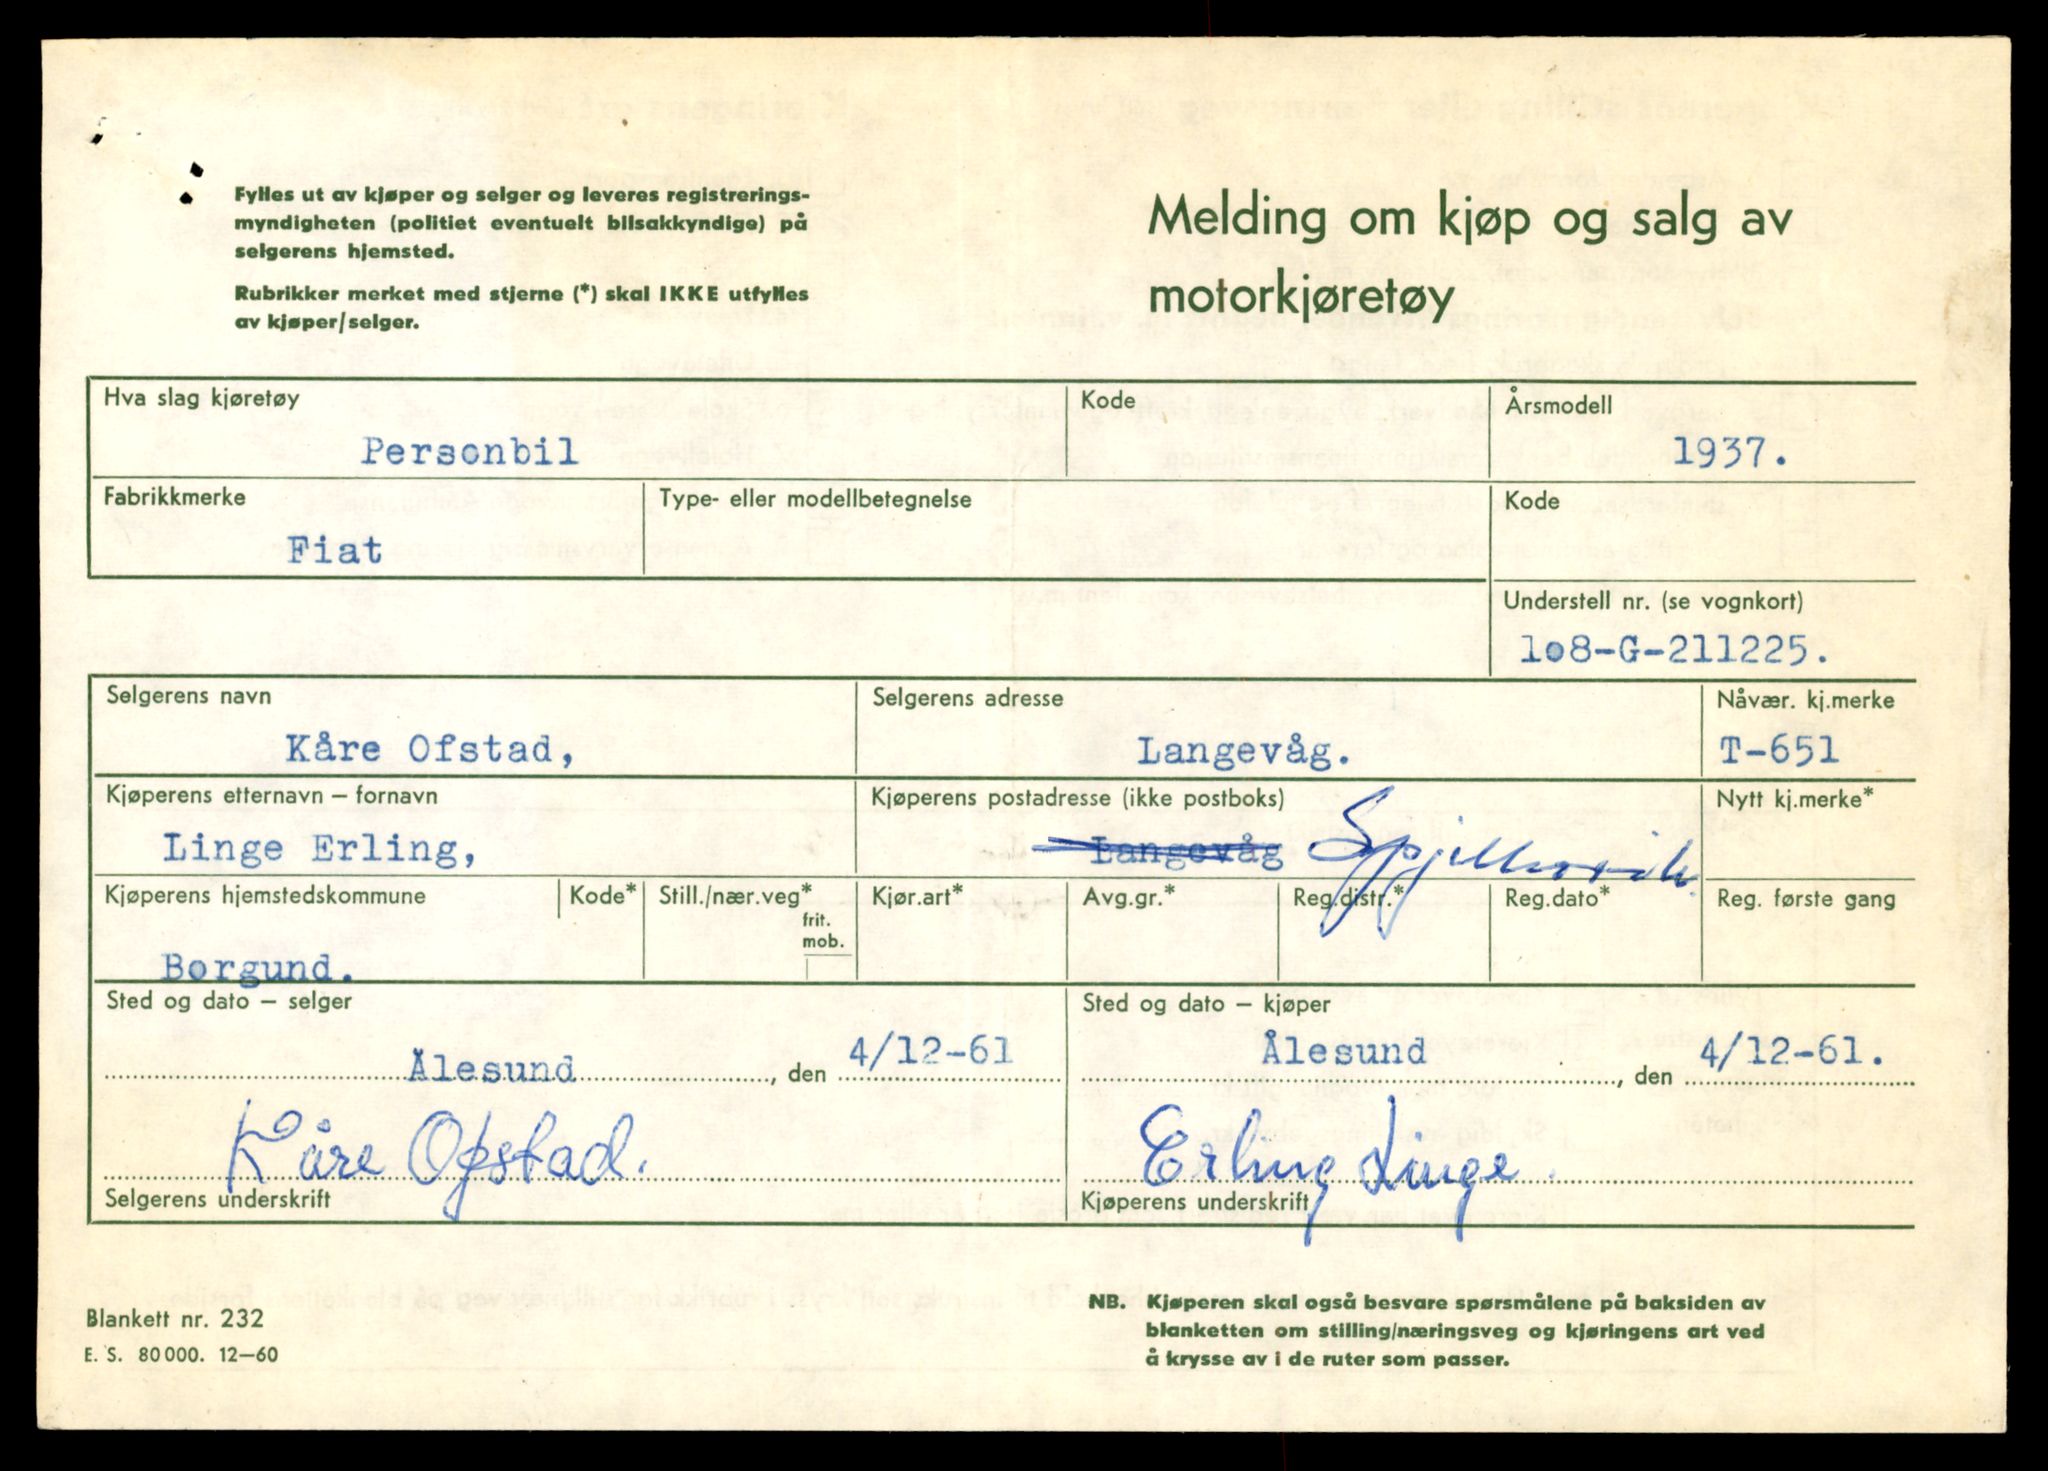 Fylles ut av kjøper og selger og leveres registrerings-
myndigheten (politiet eventuelt bilsakkyndige) på
selgerens hjemsted.
Rubrikker merket med stjerne (*) skal IKKE utfylles
av kjøper/selger.
Melding om kjøp og salg av
motorkjøretøy
Hva slag kjøretøy
Personbil
Kode
Årsmodell
1937.
Fabrikkmerke
Fiat
Type- eller modellbetegnelse
Kode
Understell nr. (se vognkort)
1o8-G-211225.
Selgerens navn
Kåre Ofstad,
Selgerens adresse
Langevåg.
Nåvær. kj.merke
T-651
Kjøperens etternavn – fornavn
Linge Erling,
Kjøperens postadresse (ikke postboks)
Langevåg Spjelkavik.
Nytt kj.merke*
Kjøperens hjemstedskommune
Borgund.
Kode*
Still./nær.veg*
frit.
mob.
Kjør.art*
Avg.gr.*
Reg.distr.*
Reg.dato*
Reg. første gang
Sted og dato – selger
Ålesund, den 4/12-61
Kåre Ofstad.
Selgerens underskrift
Sted og dato – kjøper
Ålesund, den 4/12-61.
Erling Linge.
Kjøperens underskrift
Blankett nr. 232
E. S. 80 000. 12–60
NB. Kjøperen skal også besvare spørsmålene på baksiden av
blanketten om stilling/næringsveg og kjøringens art ved
å krysse av i de ruter som passer.